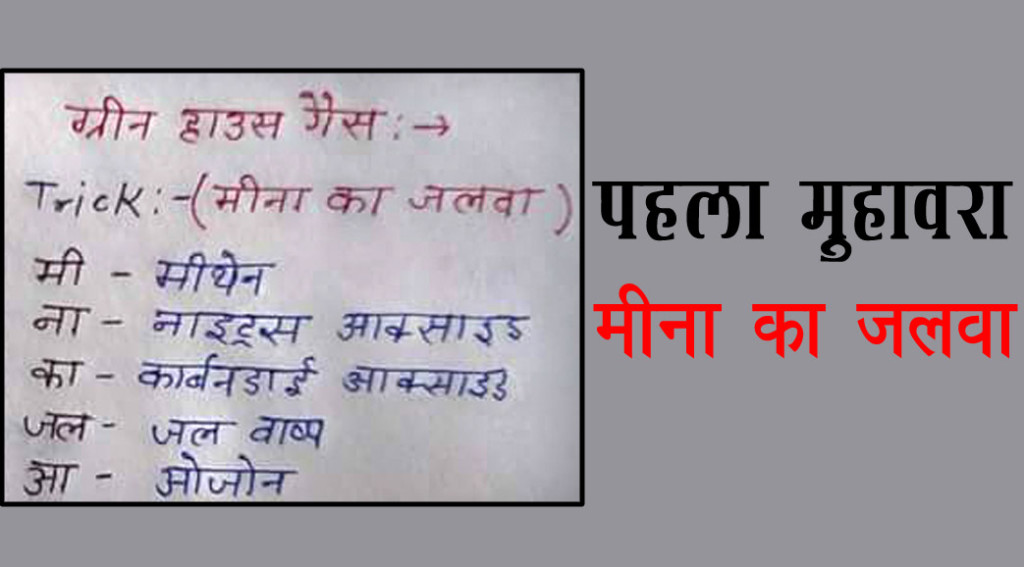 ग्रीन हाउस गैस :→
Trick :-(मीना का जलवा )
मी - मीथेन
ना - नाइट्रस आक्साइड
का - कार्बनडाई आक्साइड
जल - जल वाष्प
आ - ओजोन
पहला मुहावरा
मीना का जलवा